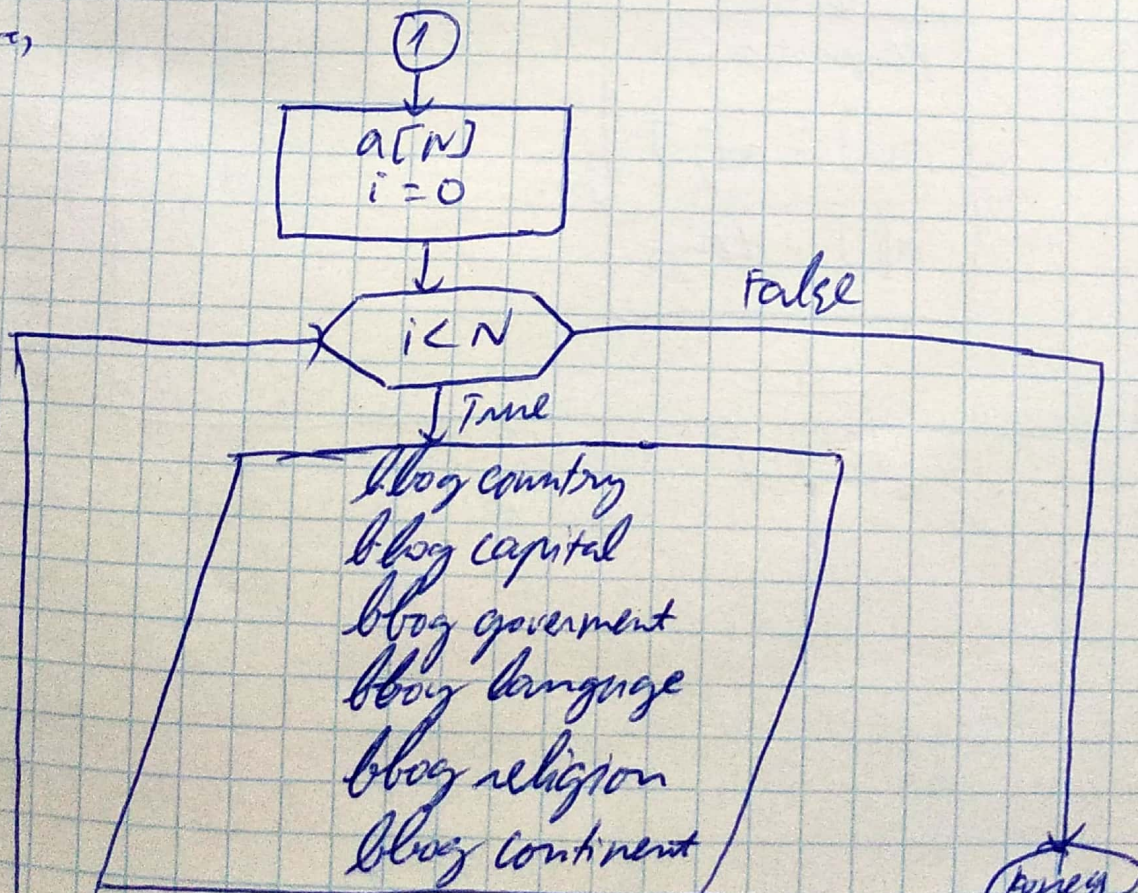 1
a[N]
i = 0
i < N
False
True
ввод country
ввод capital
ввод goverment
ввод language
ввод religion
ввод continent
конец